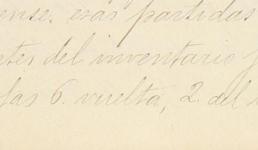 ense, esas partidas
tes del inventario
fas 6. vuelta, 2. del